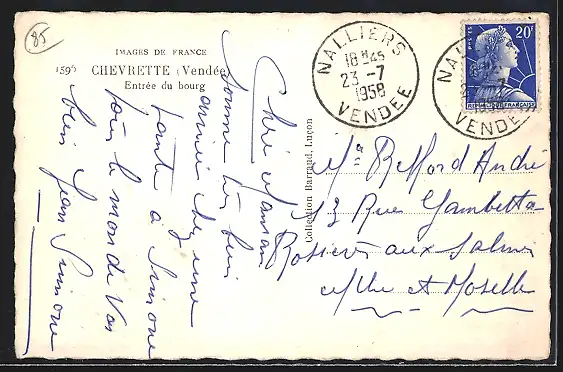 85
IMAGES DE FRANCE
1596 CHEVRETTE (Vendée)
Entrée du bourg
Collection Barraud, Luçon
NALLIERS
18H45
23 -7
1958
VENDEE
NALL
1958
VENDEE
POSTES
20F
REPUBLIQUE FRANÇAISE
Chère Maman
sommes très bien
arrivée chez une
tante à Simone
tous le monde Vas
bien Jean Simone
Mr Refford André
13 Rue Gambetta
Rosières aux Salines
Mthe et Moselle